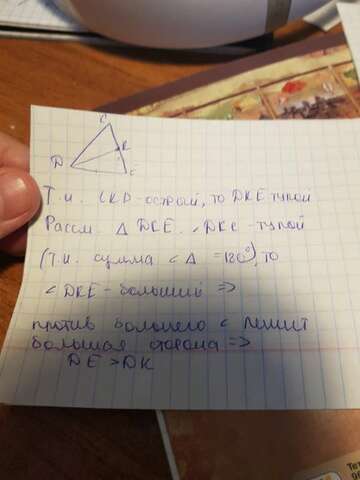 C
D
K
E
Т.и. CKD-острый, то DKE тупой
Рассм. Δ DEE. <DKE-тупой
(т.и. сумма < Δ = 180°), то
< DKE-больший =>
против большего < лежит
большая сторона =>
DE > DK